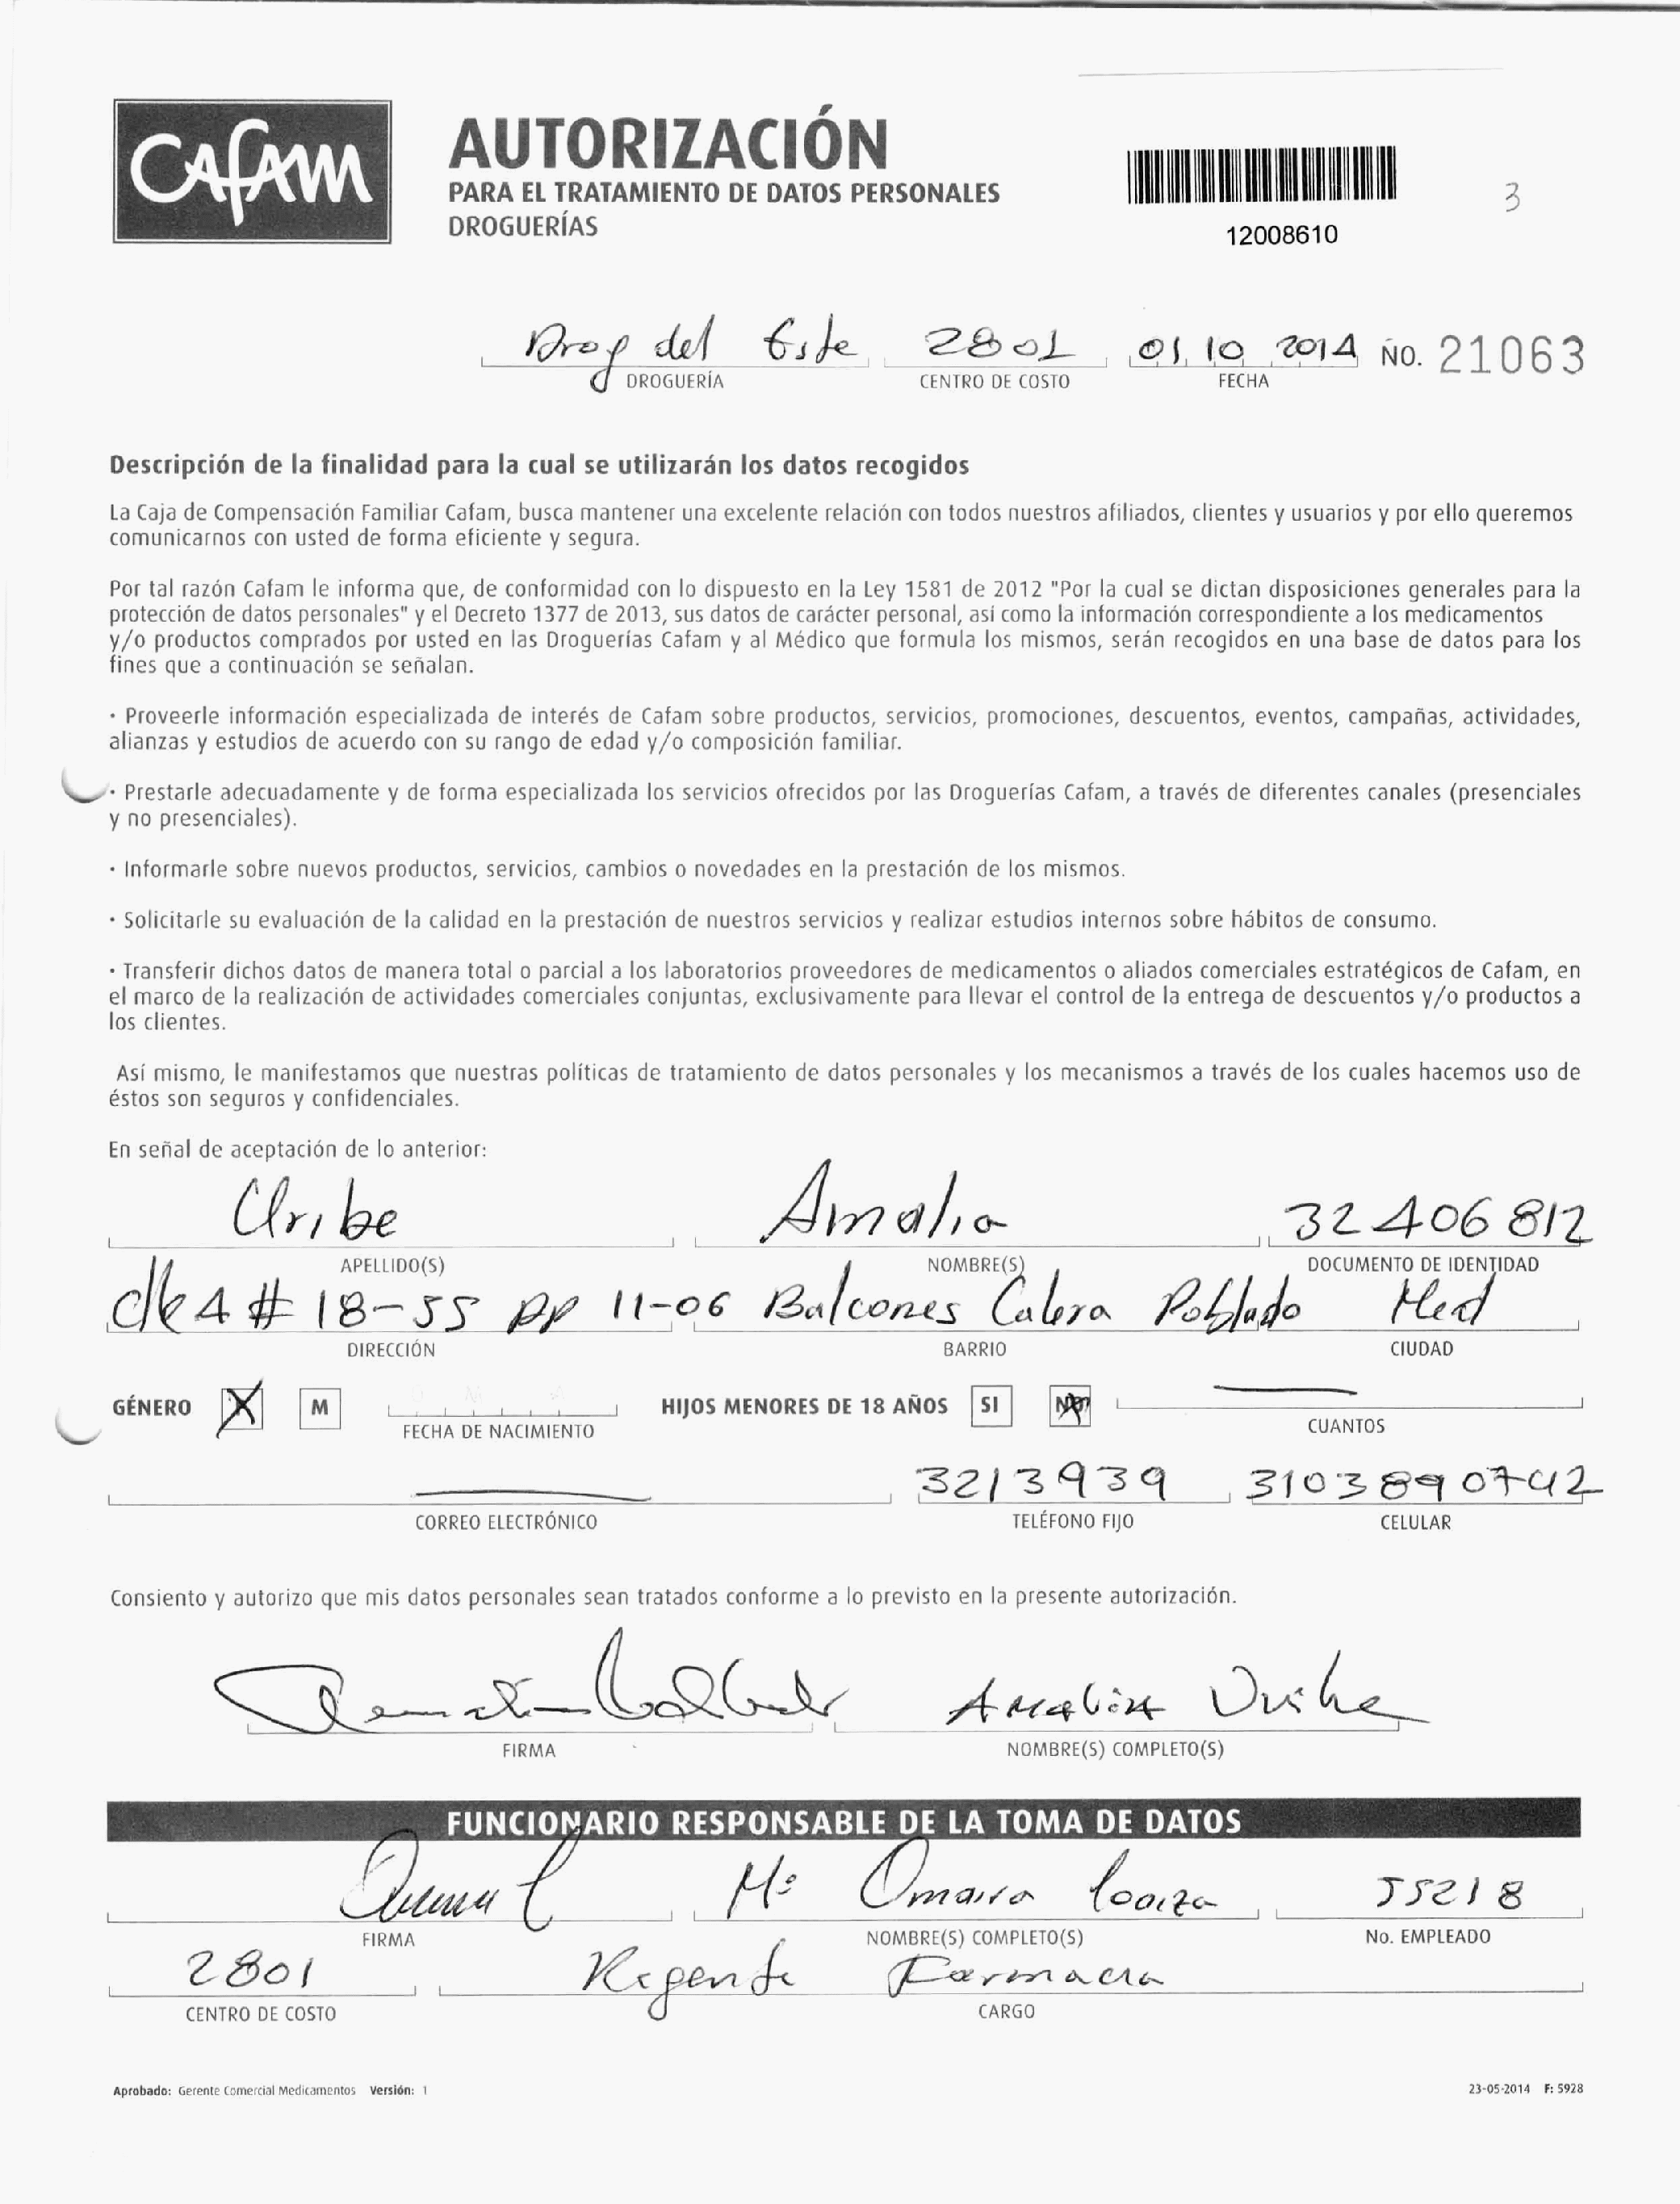 CAFAM
AUTORIZACIÓN
PARA EL TRATAMIENTO DE DATOS PERSONALES
DROGUERÍAS
12008610
3
Drog del Este 2801 01 10 2014 NO. 21063
DROGUERÍA CENTRO DE COSTO FECHA
Descripción de la finalidad para la cual se utilizarán los datos recogidos
La Caja de Compensación Familiar Cafam, busca mantener una excelente relación con todos nuestros afiliados, clientes y usuarios y por ello queremos
comunicarnos con usted de forma eficiente y segura.
Por tal razón Cafam le informa que, de conformidad con lo dispuesto en la Ley 1581 de 2012 "Por la cual se dictan disposiciones generales para la
protección de datos personales" y el Decreto 1377 de 2013, sus datos de carácter personal, así como la información correspondiente a los medicamentos
y/o productos comprados por usted en las Droguerías Cafam y al Médico que formula los mismos, serán recogidos en una base de datos para los
fines que a continuación se señalan.
· Proveerle información especializada de interés de Cafam sobre productos, servicios, promociones, descuentos, eventos, campañas, actividades,
alianzas y estudios de acuerdo con su rango de edad y/o composición familiar.
· Prestarle adecuadamente y de forma especializada los servicios ofrecidos por las Droguerías Cafam, a través de diferentes canales (presenciales
y no presenciales).
· Informarle sobre nuevos productos, servicios, cambios o novedades en la prestación de los mismos.
· Solicitarle su evaluación de la calidad en la prestación de nuestros servicios y realizar estudios internos sobre hábitos de consumo.
· Transferir dichos datos de manera total o parcial a los laboratorios proveedores de medicamentos o aliados comerciales estratégicos de Cafam, en
el marco de la realización de actividades comerciales conjuntas, exclusivamente para llevar el control de la entrega de descuentos y/o productos a
los clientes.
Así mismo, le manifestamos que nuestras políticas de tratamiento de datos personales y los mecanismos a través de los cuales hacemos uso de
éstos son seguros y confidenciales.
En señal de aceptación de lo anterior:
Uribe Amalia 32406812
APELLIDO(S) NOMBRE(S) DOCUMENTO DE IDENTIDAD
clle 4 # 18-55 ap 11-06 Balcones Calera Poblado Med
DIRECCIÓN BARRIO CIUDAD
GÉNERO X M HIJOS MENORES DE 18 AÑOS SI NO
FECHA DE NACIMIENTO CUANTOS
3213939 3103890742
CORREO ELECTRÓNICO TELÉFONO FIJO CELULAR
Consiento y autorizo que mis datos personales sean tratados conforme a lo previsto en la presente autorización.
Amalia Uribe
FIRMA NOMBRE(S) COMPLETO(S)
FUNCIONARIO RESPONSABLE DE LA TOMA DE DATOS
Mª Omaira Loaiza 55218
FIRMA NOMBRE(S) COMPLETO(S) No. EMPLEADO
2801 Regente Farmacia
CENTRO DE COSTO CARGO
Aprobado: Gerente Comercial Medicamentos Versión: 1 23-05-2014 F: 5928